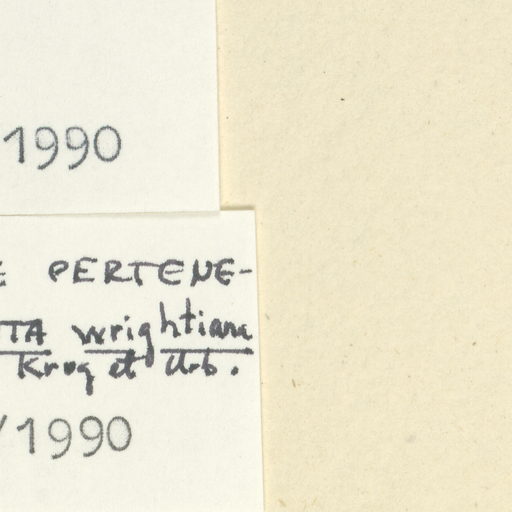 /1990
E PERTENE-
TTA wrightiana
Krug et Urb.
/1990